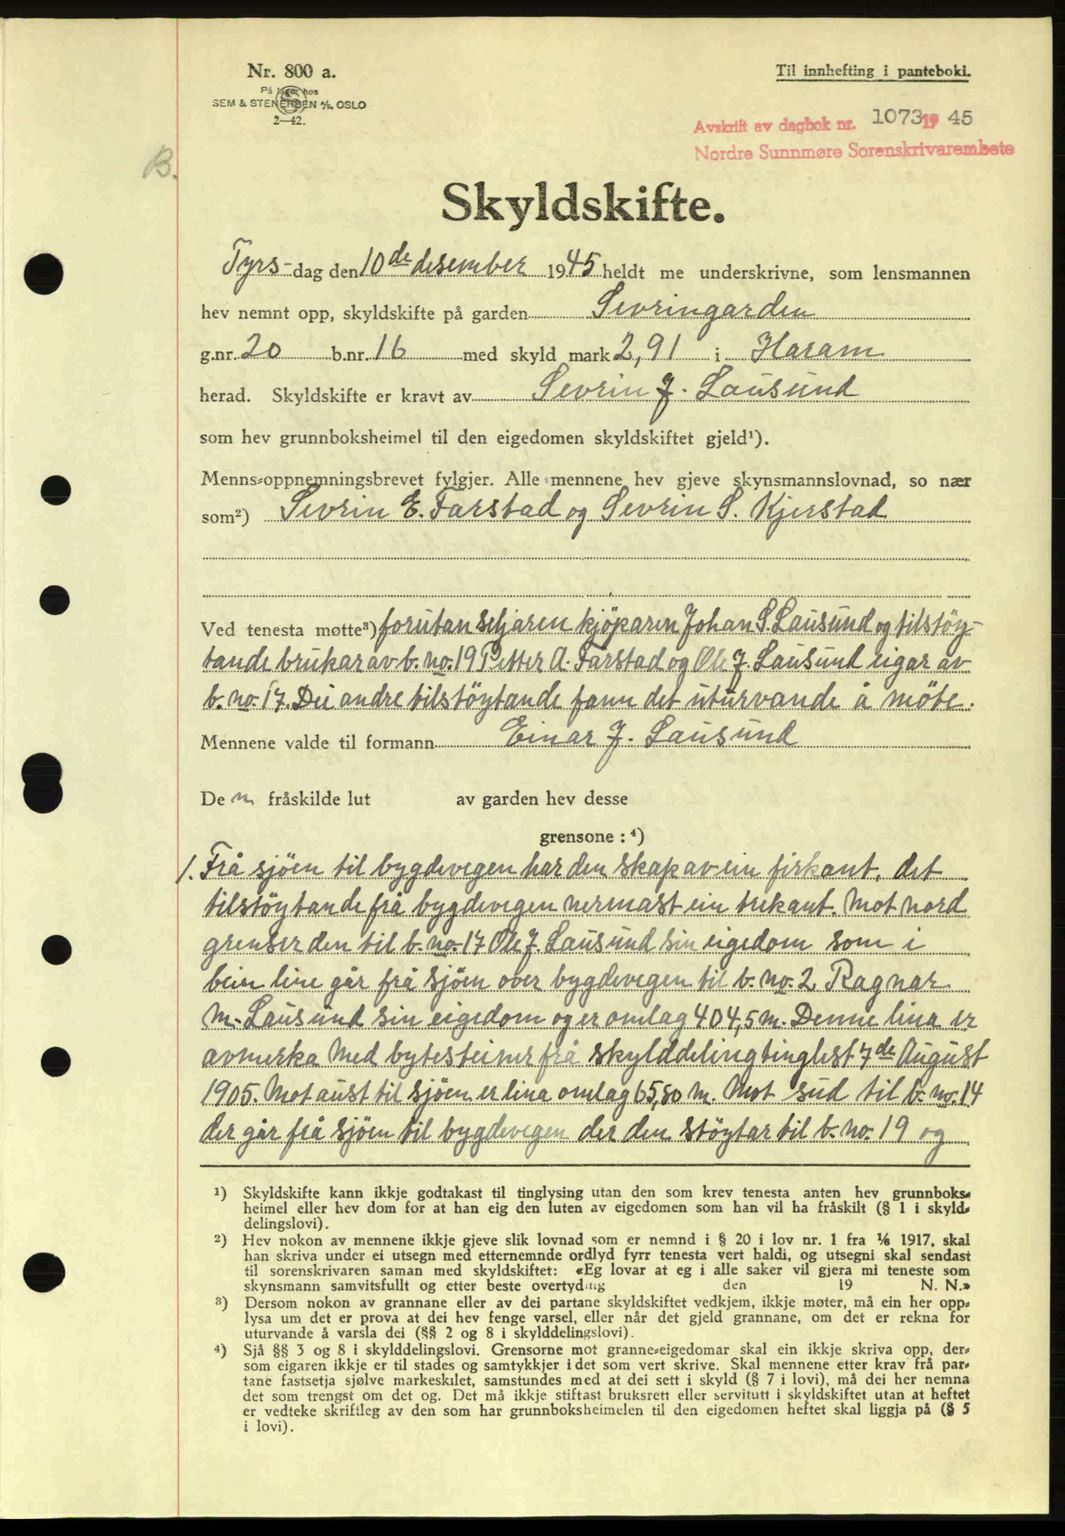 Nr. 800 a.
På lager hos
SEM & STENERSEN A/S, OSLO
2—42.
Til innhefting i panteboki.
Avskrift av dagbok nr. 1073 1945
Nordre Sunnmøre Sorenskrivarembete
B.
Skyldskifte.
Tyrs-dag den 10de desember 1945 heldt me underskrivne, som lensmannen
hev nemnt opp, skyldskifte på garden Sevringarden
g.nr. 20 b.nr. 16 med skyld mark 2,91 i Haram
herad. Skyldskifte er kravt av Sevrin J. Lausund
som hev grunnboksheimel til den eigedomen skyldskiftet gjeld¹).
Menns-oppnemningsbrevet fylgjer. Alle mennene hev gjeve skynsmannslovnad, so nær
som²) Sevrin E. Farstad og Sevrin S. Kjerstad
Ved tenesta møtte³) forutan seljaren kjöparen Johan S. Lausund og tilstöy-
tande brukar av b. no. 19 Petter A. Farstad og Ole J. Lausund eigar av
b. no. 17. Dei andre tilstöytande fann det uturvande å möte.
Mennene valde til formann Einar J. Lausund
De n fråskilde lut av garden hev desse
grensone : ⁴)
1. Frå sjöen til bygdevegen har den skap av ein firkant, det
tilstöytande frå bygdevegen nermast ein trekant. Mot nord
grenser den til b. no. 17 Ole J. Lausund sin eigedom som i
bein line går frå sjöen over bygdevegen til b. no. 2 Ragnar
M. Lausund sin eigedom og er omlag 404,5 m. Denne lina er
avmerka med bytesteiner frå skylddeling tinglest 7de August
1905. Mot aust til sjöen er lina omlag 65,80 m. Mot sud til b. no. 14
der går frå sjöen til bygdevegen der den stöytar til b. no. 19 og
¹) Skyldskifte kann ikkje godtakast til tinglysing utan den som krev tenesta anten hev grunnboks-
heimel eller hev dom for at han eig den luten av eigedomen som han vil ha fråskilt (§ 1 i skyld-
delingslovi).
²) Hev nokon av mennene ikkje gjeve slik lovnad som er nemnd i § 20 i lov nr. 1 fra 1/6 1917, skal
han skriva under ei utsegn med etternemnde ordlyd fyrr tenesta vert haldi, og utsegni skal sendast
til sorenskrivaren saman med skyldskiftet: «Eg lovar at eg i alle saker vil gjera mi teneste som
skynsmann samvitsfullt og etter beste overtyding den 19 N. N.»
³) Dersom nokon av grannane eller av dei partane skyldskiftet vedkjem, ikkje møter, må ein her opp-
lysa um det er prova at dei hev fenge varsel, eller når det gjeld grannane, om det er rekna for
uturvande å varsla dei (§§ 2 og 8 i skylddelingslovi).
⁴) Sjå §§ 3 og 8 i skylddelingslovi. Grensorne mot granne-eigedomar skal ein ikkje skriva opp, der-
som eigaren ikkje er til stades og samtykkjer i det som vert skrive. Skal mennene etter krav frå par-
tane fastsetja sjølve markeskilet, samstundes med at dei sett i skyld (§ 7 i lovi), må dei her nemna
det som trengst om det og. Det må ikkje stiftast bruksrett eller servitutt i skyldskiftet utan at heftet
er vedteke skriftleg av den som har grunnboksheimelen til den eigedomen heftet skal liggja på (§ 5
i lovi).